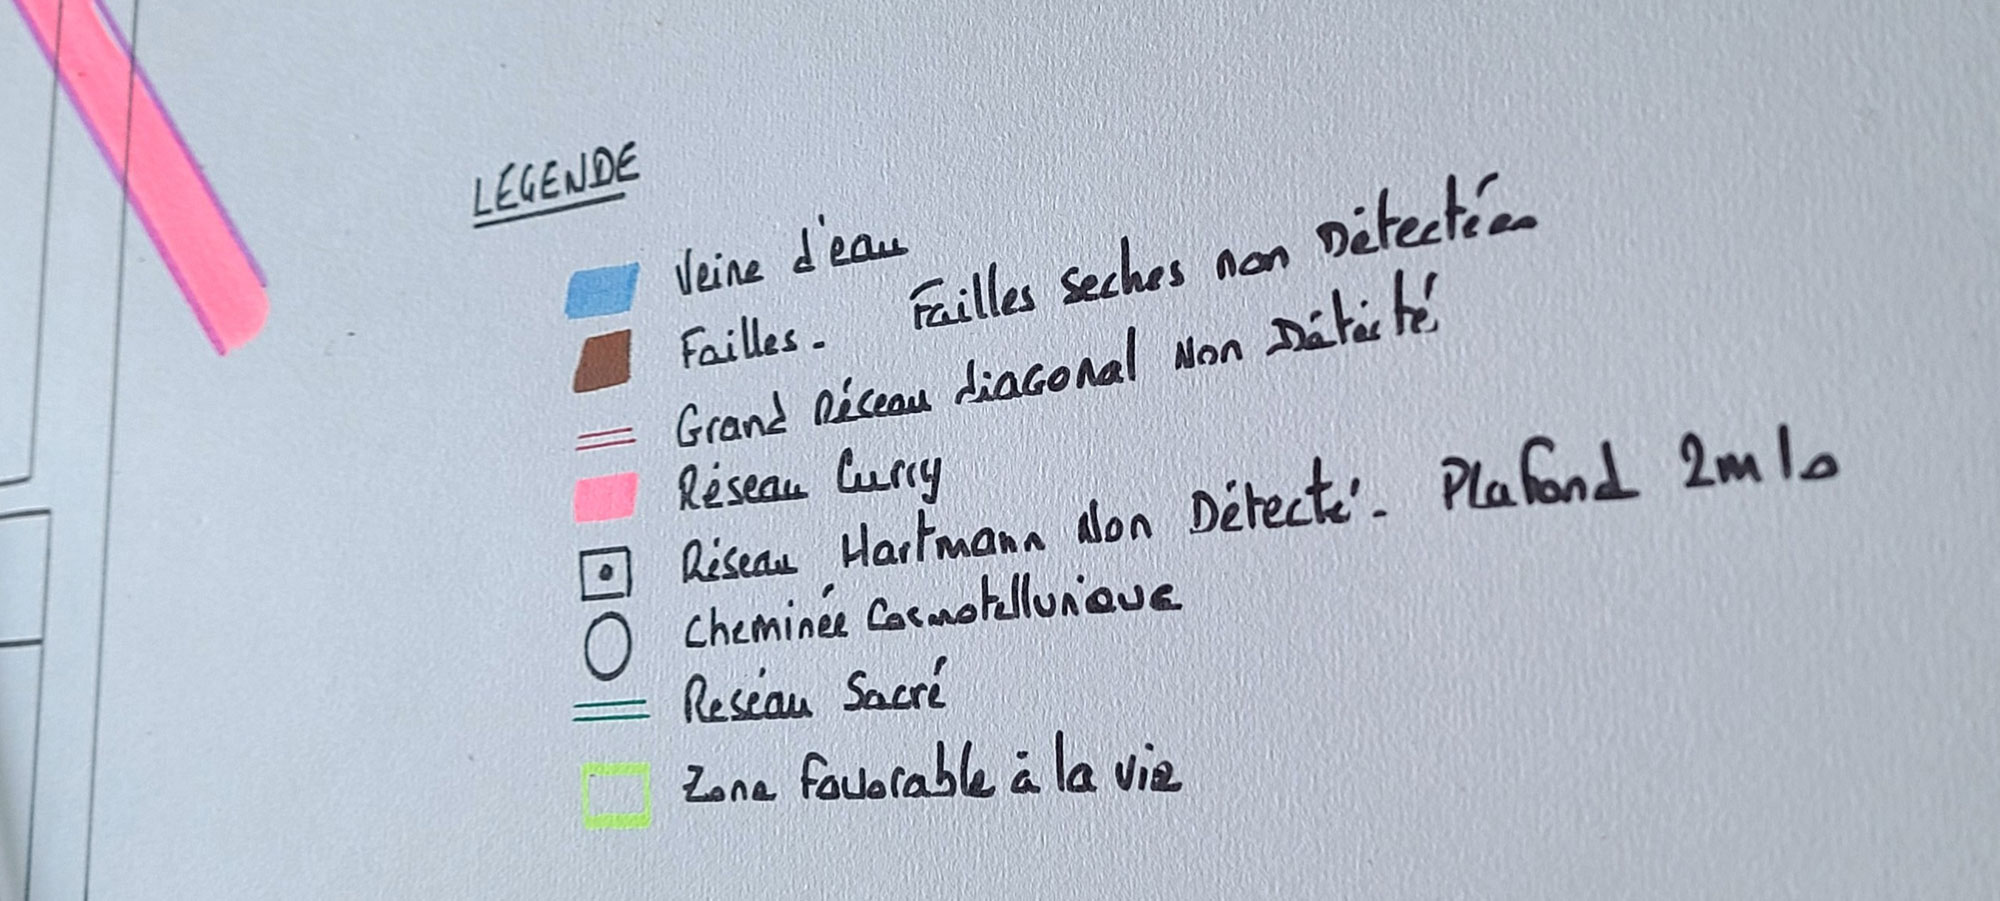 LÉGENDE
Veine d'eau
Failles. Failles seches non Détectées
Grand Réseau diagonal Non Détecté
Réseau Curry
Réseau Hartmann Non Détecté. Plafond 2m10
Cheminée Cosmotellurique
Reséau Sacré
Zone favorable à la vie